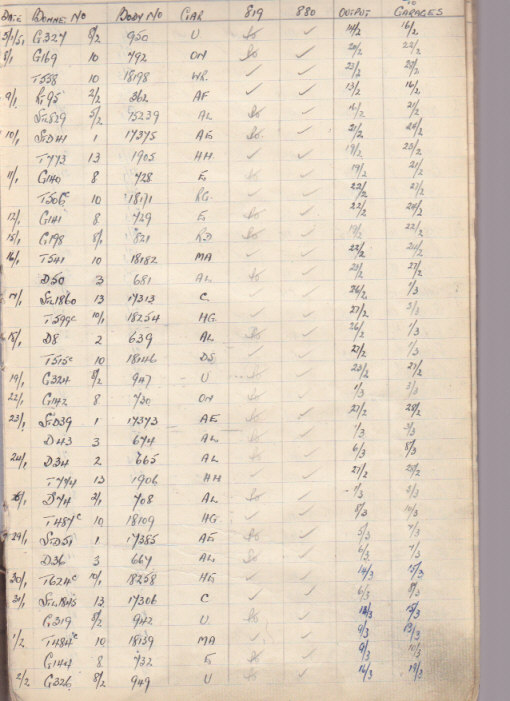 DATE BONNET NO BODY NO GAR 819 880 OUTPUT TO GARAGES
5/1/51 G327 8/2 950 U ✓ ✓ 14/2 16/2
8/1 G169 10 792 ON ✓ 20/2 22/2
T558 10 18198 WR. ✓ ✓
9/1 2/2 362 AF ✓ ✓ 13/2 16/2
15239 AL ✓ 21/2
10/1 STD41 1 17375 AE ✓
T773 13 1905 HH ✓ ✓ 19/2
11/1 G140 8 728 E ✓ 19/2 21/2
T506c 10 18171 RG. ✓ ✓ 22/2
12/1 G141 8 729 E ✓ 22/2
15/1 G198 8/1 821 RD ✓ 22/2
16/1 T541 10 18182 MA ✓ ✓ 22/2
D50 3 681 AL ✓ 27/2
17/1 STL1860 13 17313 C ✓ ✓ 26/2 1/3
T599c 10/1 18254 HG ✓ ✓ 27/2
18/1 D8 2 639 AL ✓ 26/2 1/3
T515c 10 18146 DS ✓ ✓ 27/2 1/3
19/1 G324 8/2 947 U ✓ 23/2 27/2
22/1 G142 8 730 ON ✓ 1/3 3/3
23/1 STD39 1 17373 AE ✓ 27/2 28/2
D43 3 674 AL ✓ 1/3 3/3
24/1 D34 2 665 AL ✓ 6/3 8/3
T774 13 1906 HH ✓ ✓ 27/2 28/2
D74 3/1 708 AL ✓
T487c 10 18109 HG ✓ ✓ 8/3 10/3
29/1 STD51 1 17385 AE ✓ 5/3 7/3
D36 3 667 AL ✓ 6/3 7/3
30/1 T624c 10/1 18258 HE ✓ ✓ 14/3 15/3
31/1 STL1845 13 17306 C ✓ ✓ 6/3 8/3
G319 8/2 942 U ✓ 15/3
1/2 T484c 10 18139 MA ✓ ✓ 9/3 13/3
G144 8 732 E ✓ 9/3 10/3
2/2 G326 8/2 949 U ✓ 14/3 19/3